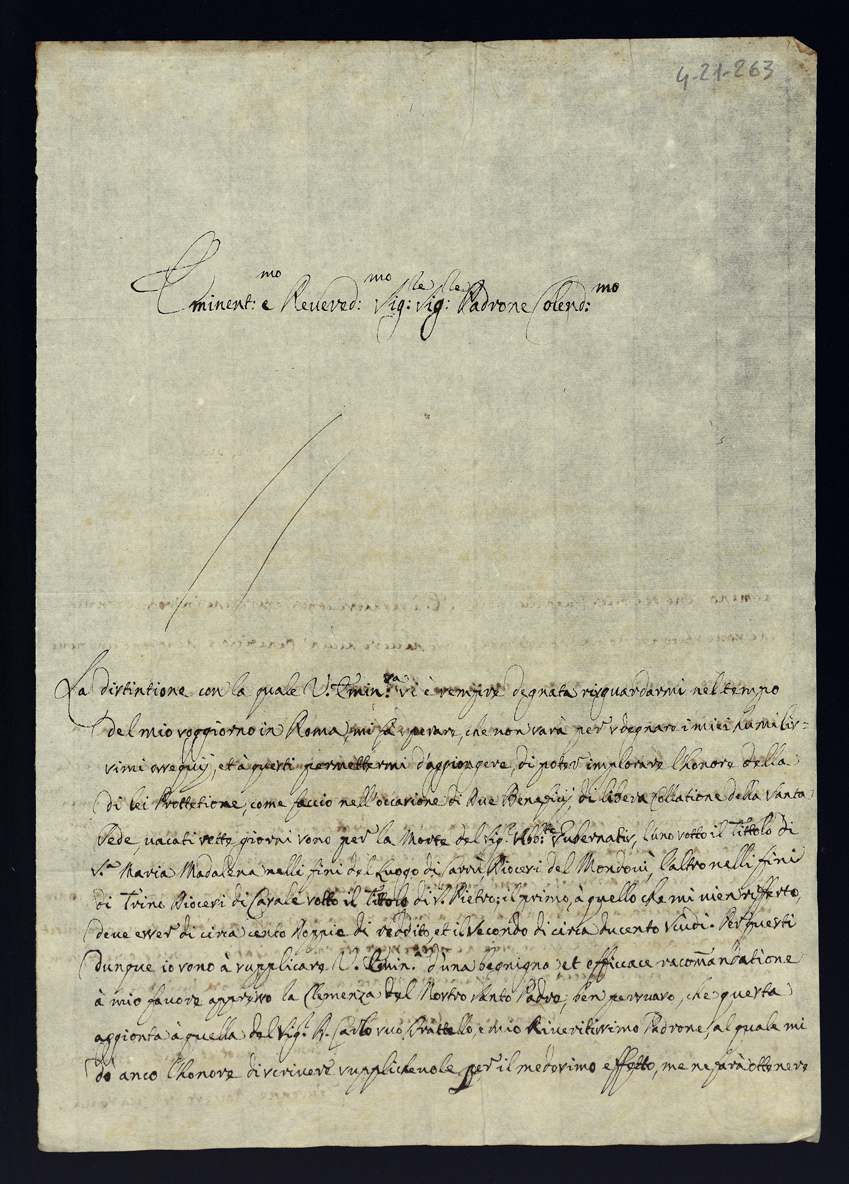 4-21-263
Eminent:mo e Reuered:mo Sig:le Sig:le Padrone Colend:mo
La distintione con la quale V. Emin.za si è sempre degnata risguardarmi nel tempo
del mio soggiorno in Roma, mi fà sperare, che non sarà per sdegnare i miei humilis=
simi ossequij, et à questi permettermi d'aggiongere, di poter implorare l'honore della
di lei Prottetione, come faccio nell'occasione di due Beneficij, di libera Collatione della Santa
Sede, uacati sette giorni sono per la Morte del Sig.r Abb.te Gubernatis, l'uno sotto il Tittolo di
S.ta Maria Madalena nelli fini del Luogo di Carrù Diocesi del Mondouì, l'altro nelli fini
di Trino Diocesi di Casale sotto il Tittolo di S. Pietro; il primo, à quello che mi uien rifferto,
deue esser di circa cento Doppie di reddito, et il Secondo di circa ducento Scudi. Per questi
dunque io sono à supplicare V. Emin.za d'una begnigna et efficace racomãndatione
à mio fauore appresso la Clemenza del Nostro Santo Padre, ben persuaso, che questa
aggionta à quella del Sig.r D. Carlo suo Frattello, e mio Riueritissimo Padrone, al quale mi
dò anco l'honore di scriuere supplicheuole per il medesimo effetto, me ne farà ottenere